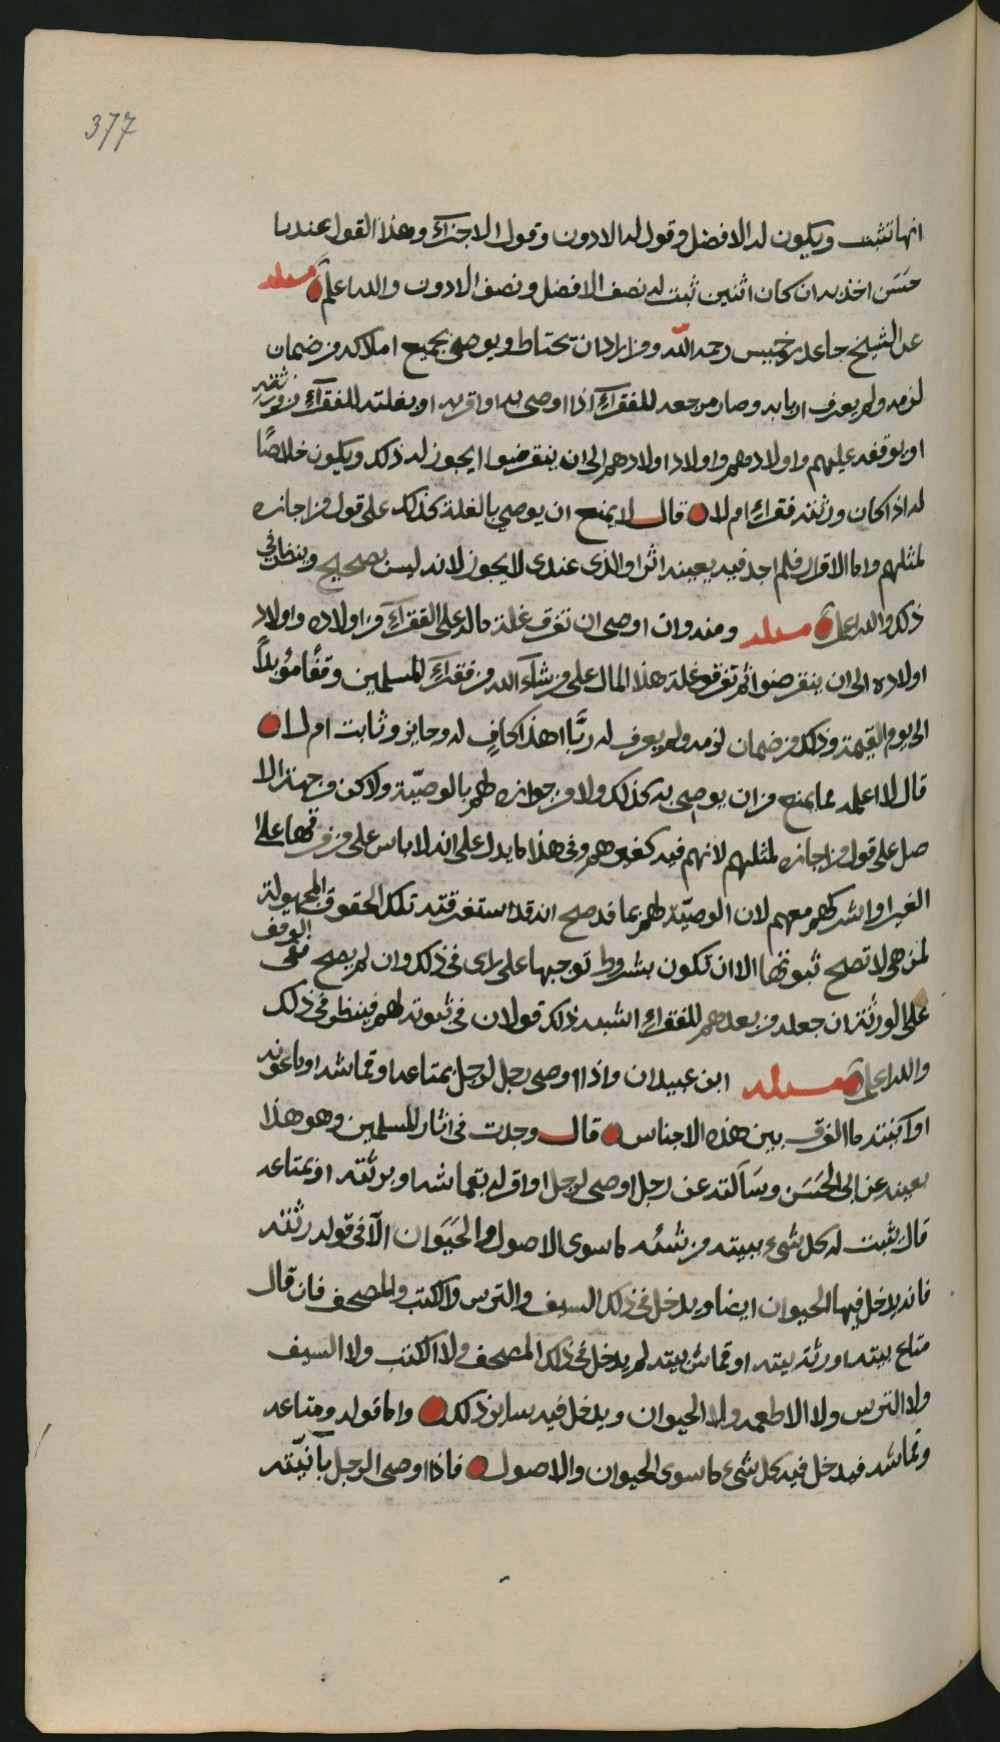 377
انها تثبت ويكون له الافضل وقول له الادون وقول الاجزاء وهذا القول عندنا
حَسَن اخذ به ان كان اثنين ثبت له نصف الافضل ونصف الادون والله اعلم مسئله
عن الشيخ جاعد بن خميس رحمه الله ومن اراد ان يحتاط ويوصي بجميع املاكه من ضمان
لزمه ولم يعرف اربابه وصار مرجعه للفقراء اذا اوصى به او اقر به او بغلته للفقراء من ورثته
او يوقفه عليهم واولادهم واولاد اولادهم الى ان ينقرضوا ايجوز له ذلك ويكون خلاصًا
له اذا كان ورثته فقراء ام لا قال لا يمنع ان يوصي بالغلة كذلك على قول من اجازه
لمثلهم واما الاقرار فلم اجد فيه بعينه اثرا والذي عندي لا يجوز لانه ليس بصحيح وينظر في
ذلك والله اعلم مسئله ومنه وان اوصى ان تفرق غلة ماله على الفقراء من اولاده واولاد
اولاده الى ان ينقرضوا ثم تفرقوغلة هذا المال على من شاء الله من فقراء المسلمين وقفًا مؤبدًا
الى يوم القيمة وذلك من ضمان لزمه ولم يعرف له ربًّا اهذا كافٍ له وجايز وثابت ام لا
قال لا اعلمه مما يمنع من ان يوصي به كذلك ولا من جوازه لهم بالوصيّة ولاكن من جهة الا
صل على قول من اجازه لمثلهم لانهم فيه كغيرهم وفي هذا ما يدل على انه لا باس على من فرقها على
الغير او اشركهم معهم لان الوصيّة لهم بما قد صح انه قد استغرقته تلك الحقوق المجهولة
لمن هي لا تصح ثبوتها الا ان تكون بشروط توجبها على راي في ذلك وان لم يصح فقى الوقف
على الورثة ان جعله من بعدهم للفقراء اشبه ذلك قولان في ثبوته لهم فينظر في ذلك
والله اعلم مسئله ابن عبيدان واذا اوصى رجل لرجل بمتاعه او قماشه او ماعونه
او آنيته ما الفرق بين هذه الاجناس قال وجدت في اثار المسلمين وهو هذا
بعينه عن ابي الحَسَن وسَآلته عن رجل اوصى لرجل او اقر له بقماشه او برثته او بمتاعه
قال يثبت له كل شيء ببيته من رثته ما سوى الاصول والحَيَوان الّا في قوله رثته
فانه يدخل فيها الحيوان ايضا ويدخل في ذلك السيف والترس والكتب والمصحف فان قال
متاع بيته او رثة بيته او قماش بيته لم يدخل في ذلك المصحف ولا الكتب ولا السيف
ولا الترس ولا الاطعمه ولا الحيوان ويدخل فيه ساير ذلك واما قوله ومتاعه
وقماشه فيدخل فيه كل شيء ما سوى الحيوان والاصول فاذا اوصى الرجل بآنيّته